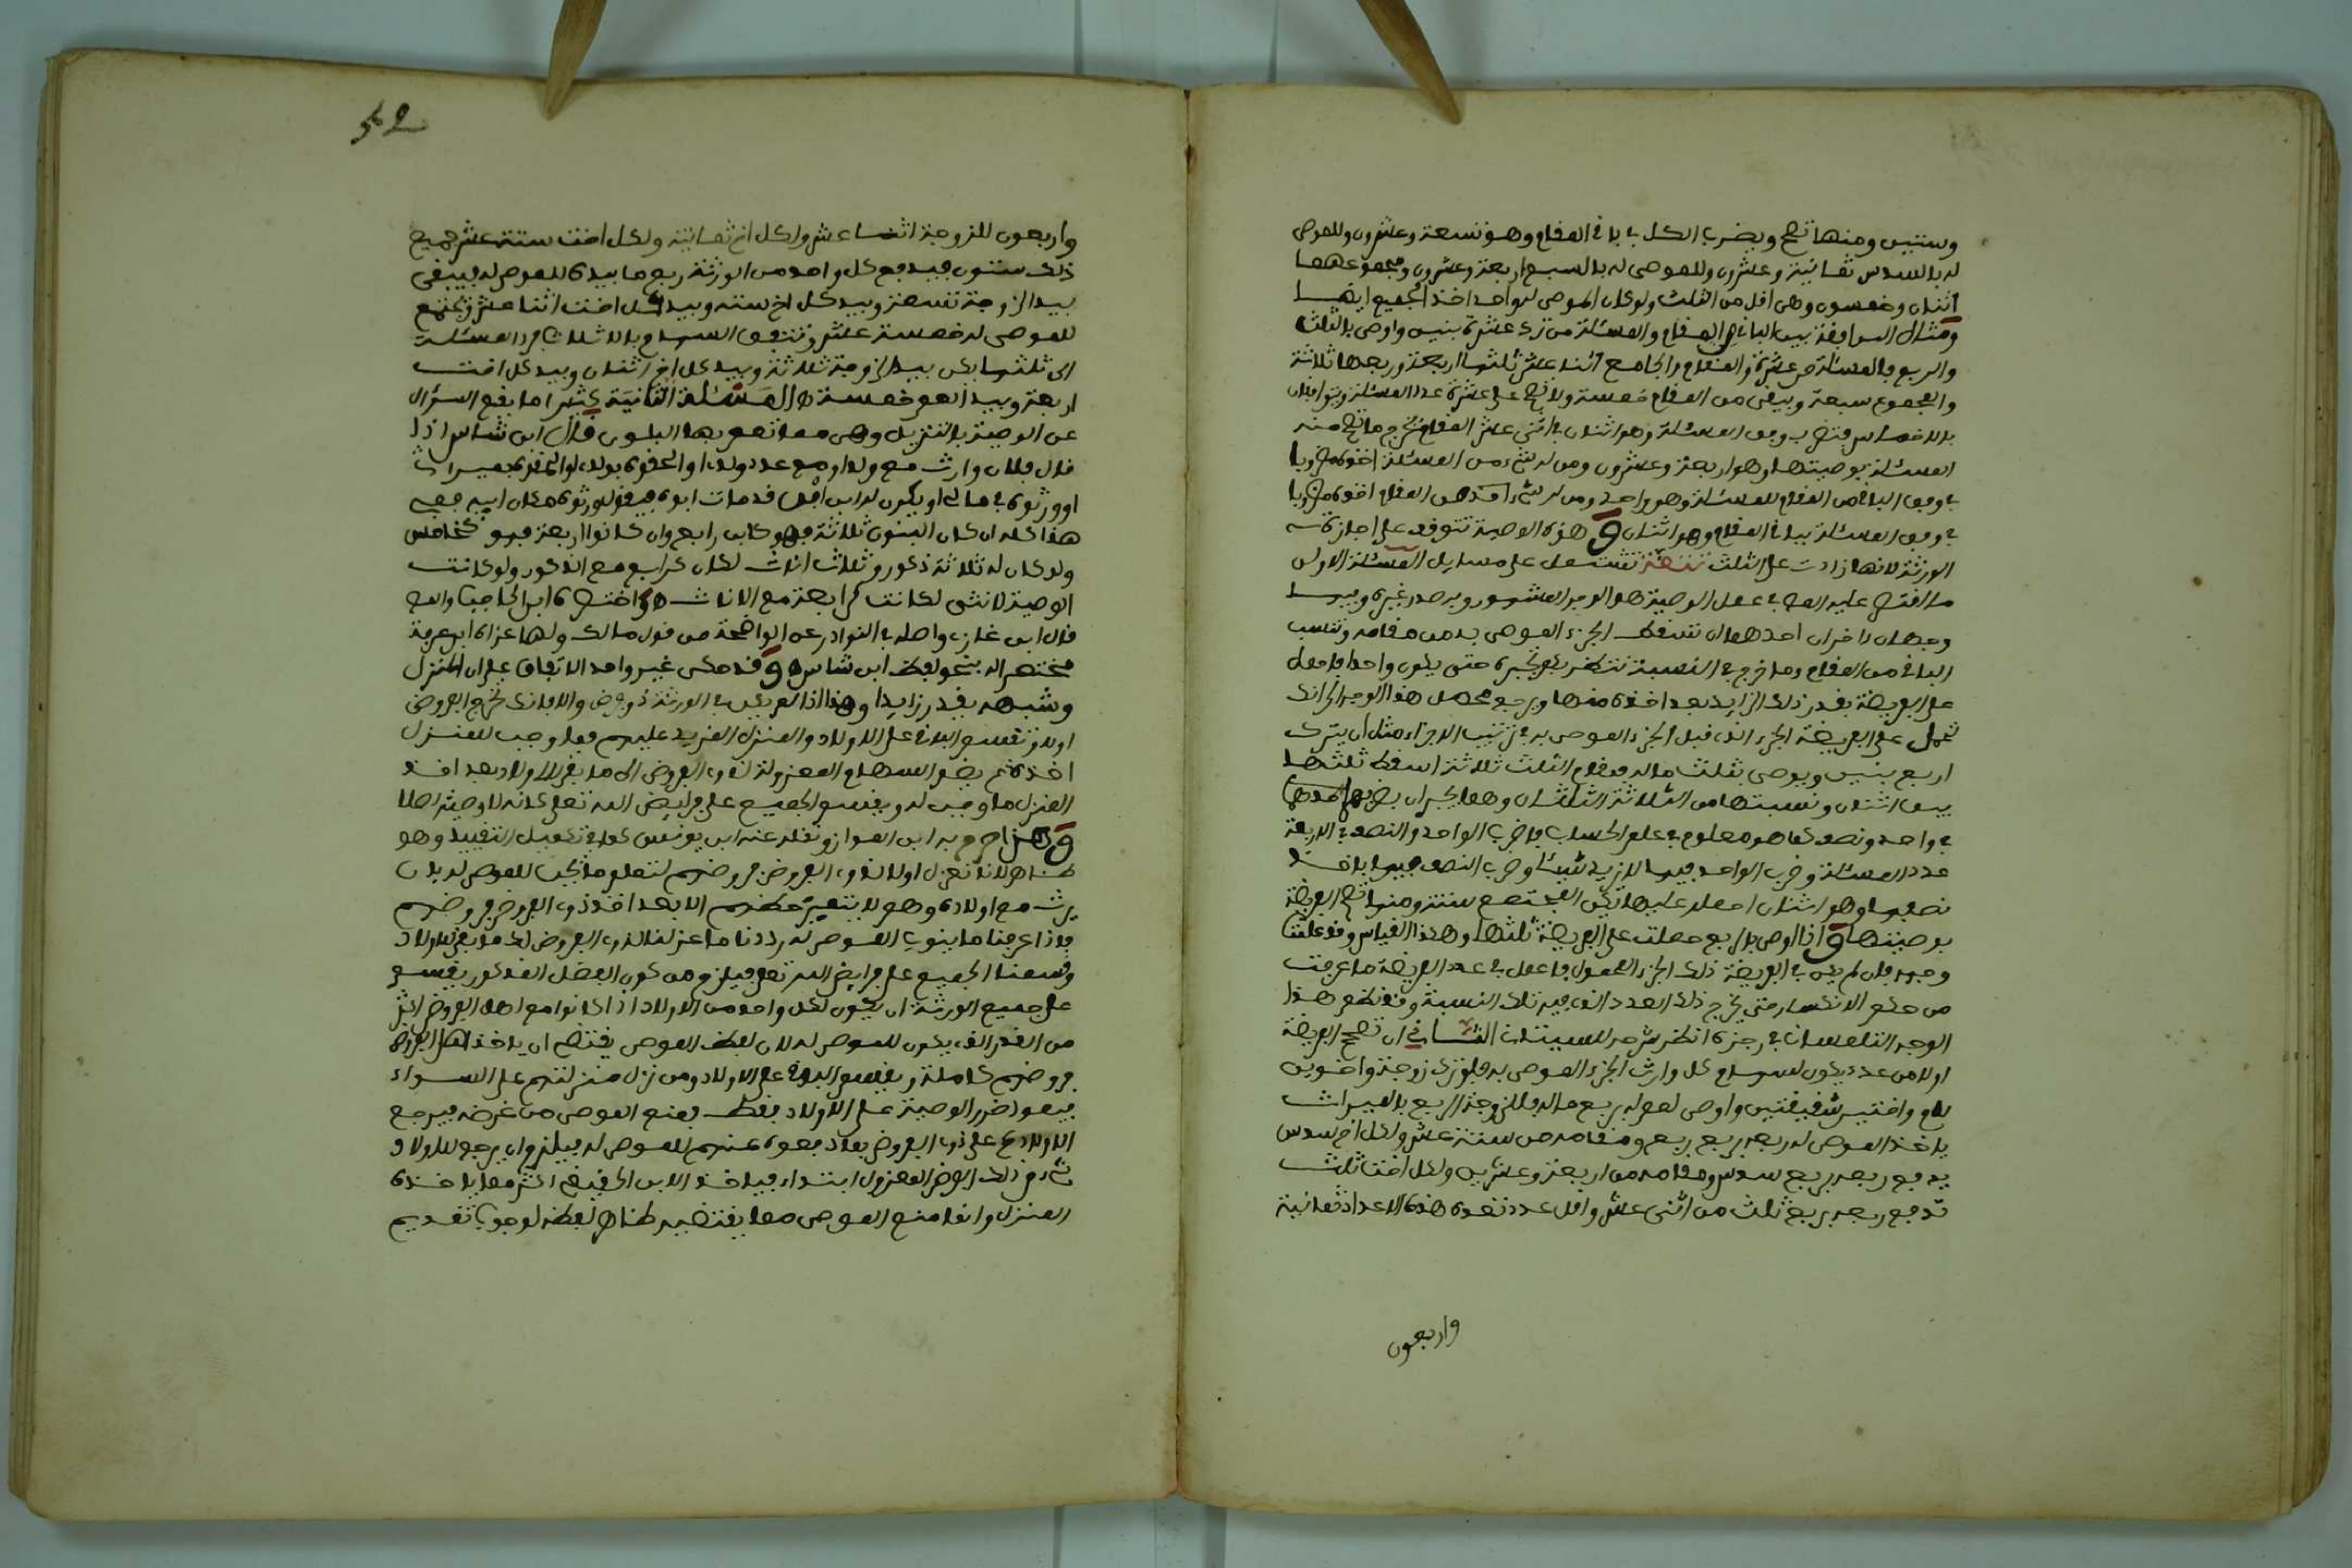 وستين ومنها تصح ويضرب الكل في باقي المقام وهو تسعة وعشرون وللموصى
له بالسدس ثمانية وعشرون وللموصى له بالسبع اربعة وعشرون ومجموعهما
اثنان وخمسون وهي اقل من الثلث ولو كان الموصى له واحد اخذ الجميع ايضا
ومثال الموافقة بين الباقي والمقام والمسئلة من ترك عشرة بنين واوصى بالثلث
والربع فالمسئلة من عشرة والمقام الجامع اثنا عشر ثلثها اربعة وربعها ثلاثة
والمجموع سبعة ويبقى من المقام خمسة ولا تصح على عشرة عدد المسئلة وتوافقان
بالاخماس فتضرب وفق المسئلة وهو اثنان في اثني عشر المقام تخرج ما تصح منه
المسئلة بوصيتها وهو اربعة وعشرون ومن له شيء من المسئلة اخذه مضروبا
في وفق الباقي من المقام للمسئلة وهو واحد ومن له شيء من المقام اخذه مضروبا
في وفق المسئلة لباقي المقام وهو اثنان وهذه الوصية تتوقف على اجازة
الورثة لانها زادت على الثلث تتمة تشتمل على مسايل المسئلة الاولى
ما اقتصر عليه المص في عمل الوصية هو الوجه المشهور وبه صدر غيره وفيها
وجهان اخران احدهما ان تسقط الجزء الموصى به من مقامه وتنسب
الباقي من المقام وما خرج في النسبة تنظر بكم تجبره حتى يكون واحدا فاحمل
على الفريضة بقدر ذلك الزايد بعد اخذه منها ويرجع محصل هذا الوجه الى انك
تحمل على الفريضة الجزء الذي قبل الجزء الموصى به في ترتيب الاجزاء مثل ان يترك
اربع بنين ويوصي بثلث ماله فمقام الثلث ثلاثة اسقط ثلثها
يبقى اثنان ونسبتها من الثلاثة الثلثان وهما يجبران بضربهما
في واحد ونصف كما هو معلوم في علم الحساب فاضرب الواحد والنصف في الاربعة
عدد المسئلة وضرب الواحد فيها لا يزيد شيئا وضرب النصف فيها ياخذ
نصفها وهو اثنان احمله عليها يكن المجتمع ستة ومنها تصح الفريضة
بوصيتها واذا اوصى بالربع حملت على الفريضة ثلثها وهكذا القياس وقد علمت
وجهه فان لم يكن في الفريضة ذلك الجزء المحمول فاعمل في عدد الفريضة ما عرفت
من حكم الانكسار حتى يخرج ذلك العدد الذي فيه تلك النسبة وقد نظم هذا
الوجه التلمساني في رجزه انظر شرحه للسبتيان الثاني ان تصحح الفريضة
اولا من عدد يكون لسهام كل وارث الجزء الموصى به فلو ترك زوجة واخوين
لام واختين شقيقتين واوصى لعم له بربع ماله فللزوجة الربع بالميراث
ياخذ الموصى له ربعه بربع ربع ومقامه من ستة عشر ولكل اخ سدس
يدفع ربعه بربع سدس ومقامه من اربعة وعشرين ولكل اخت ثلث
تدفع ربعه بربع ثلث من اثني عشر واقل عدد تعده هذه الاعداد ثمانية
واربعون
واربعون للزوجة اثنا عشر ولكل اخ ثمانية ولكل اخت ستة عشر جميع
ذلك ستون فيدفع كل واحد من الورثة ربع ما بيده للموصى له فيبقى
بيد الزوجة تسعة وبيد كل اخ ستة وبيد كل اخت اثنا عشر وتجتمع
للموصى له خمسة عشر وتتفق السهام بالاثلاث فترد المسئلة
الى ثلثها يكن بيد الزوجة ثلاثة وبيد كل اخ اثنان وبيد كل اخت
اربعة وبيد العم خمسة المسئلة الثانية كثيرا ما يقع السؤال
عن الوصية بالتنزيل وهي مما تعم بها البلوى قال ابن شاس اذا
قال فلان وارث مع ولدي او مع عدد ولدي او الحقوه بولدي او الحقوه بميراثي
او ورثوه في مالي او يكون له ابن ابن قد مات ابوه فيقول ورثوه مكان ابيه ففي
هذا كله ان كان البنون ثلاثة فهو كابن رابع وان كانوا اربعة فهو كخامس
ولو كان له ثلاثة ذكور وثلاث اناث لكان كرابع مع الذكور ولو كانت
الوصية لانثى لكانت كرابعة مع الاناث واختصره ابن الحاجب والمص
قال ابن غازي واصله في النوادر عن الواضحة من قول مالك ولها عزاه ابن عرفة
مختصرا له بنحو لفظ ابن شاس وقد حكى غير واحد الاتفاق على ان المنزل
وشبهه يقدر زايدا وهذا اذا لم يكن في الورثة ذو فرض والا فانك تخرج الفروض
اولا وتقسم الباقي على الاولاد والمنزل المزيد عليهم فما وجب للمنزل
اخذه ثم يضم السهام المعزولة لذوي الفروض الى ما بقي للاولاد بعد اخذ
المنزل ما وجب له ويقسم الجميع على فرايض الله تعلى كانه لا وصية اصلا
وبهذا صرح به ابن المواز ونقله عنه ابن يونس كما في تكميل التقييد وهو
ظاهر لانا نعزل اولا لذوي الفروض فروضهم لنعلم ما يجب للموصى له بان
يرث مع اولاده وهو لا يتعين حظهم الا بعد اخذ ذوي الفروض فروضهم
فاذا عرفنا ما ينوب الموصى له رددنا ما عزلنا لذوي الفروض لما بقي للاولاد
وقسمنا الجميع على فرايض الله تعلى فيلزم من كون الفضل المذكور يقسم
على جميع الورثة ان يكون لكل واحد من الاولاد اذا كانوا مع اهل الفروض اكثر
من القدر الذي يكون للموصى له لان لفظ الموصي يقتضي ان ياخذ اهل الفروض
فروضهم كاملة ويقسم الباقي على الاولاد ومن نزل منزلتهم على السواء
فيعود ضرر الوصية على الاولاد فقط فمنع الموصي من غرضه فيرجع
الاولاد على ذوي الفروض بما دفعوه عنهم للموصى له فيلزم ان يرجع للاولاد
شيء من ذلك الفرض المعزول ابتداء فياخذ الابن الحقيقي اكثر مما ياخذه
المنزل وانما منع الموصي مما يقتضيه ظاهر لفظه لوجوب تقديم